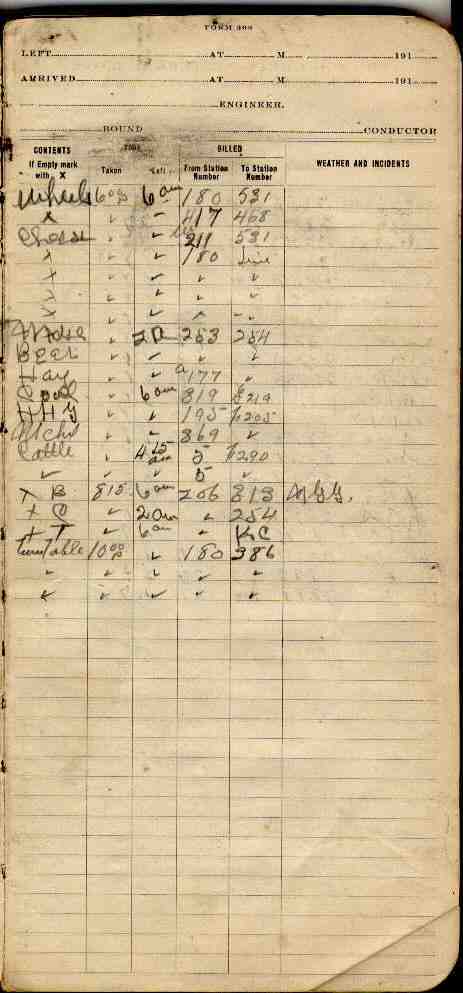 FORM 388
LEFT AT M 191
ARRIVED AT M 191
ENGINEER.
BOUND CONDUCTOR
CONTENTS If Empty mark with X Taken Left BILLED From Station Number To Station Number WEATHER AND INCIDENTS
Wheels 6 am 180 531
x ✓ 417 468
Cheese ✓ ✓ 211 531
x ✓ ✓ 180 Line
x ✓ ✓ ✓ ✓
x ✓ ✓ ✓ ✓
✓ ✓ ✓
✓ 253 254
Beer ✓ ✓ ✓ ✓
Hay ✓ ✓ 177 ✓
Coal ✓ 6 am 819
H H G ✓ ✓ 195
✓ ✓ 869 ✓
Cattle ✓ 4 15 am 5
✓ ✓ ✓ 5 ✓
x B 815 6 am 206 813
x C ✓ 2 am ✓ 254
x T ✓ 6 am ✓ K C
turntable 10 00 ✓ 180 386
✓ ✓ ✓ ✓ ✓
✓ ✓ ✓ ✓ ✓